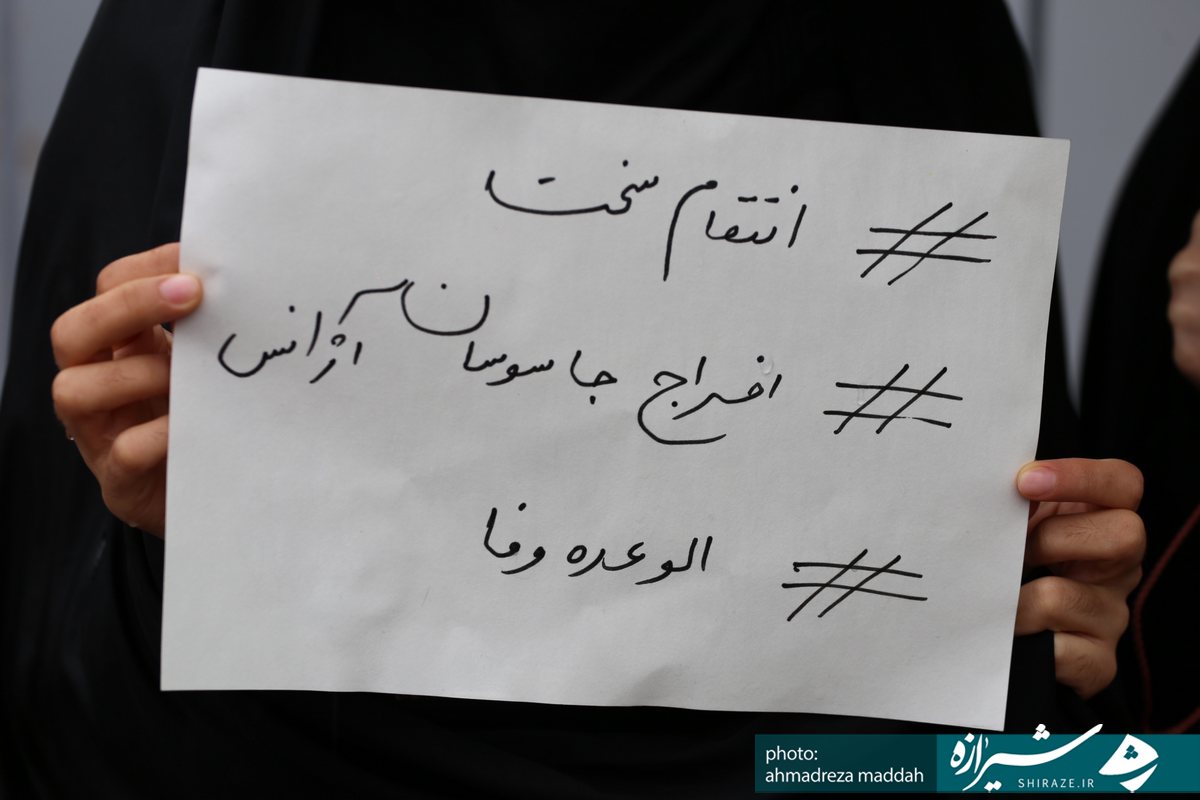 # انتقام سخت
# اخراج جاسوسان آژانس
# الوعده وفا
photo:
ahmadreza maddah
شیرازه
SHIRAZE.IR